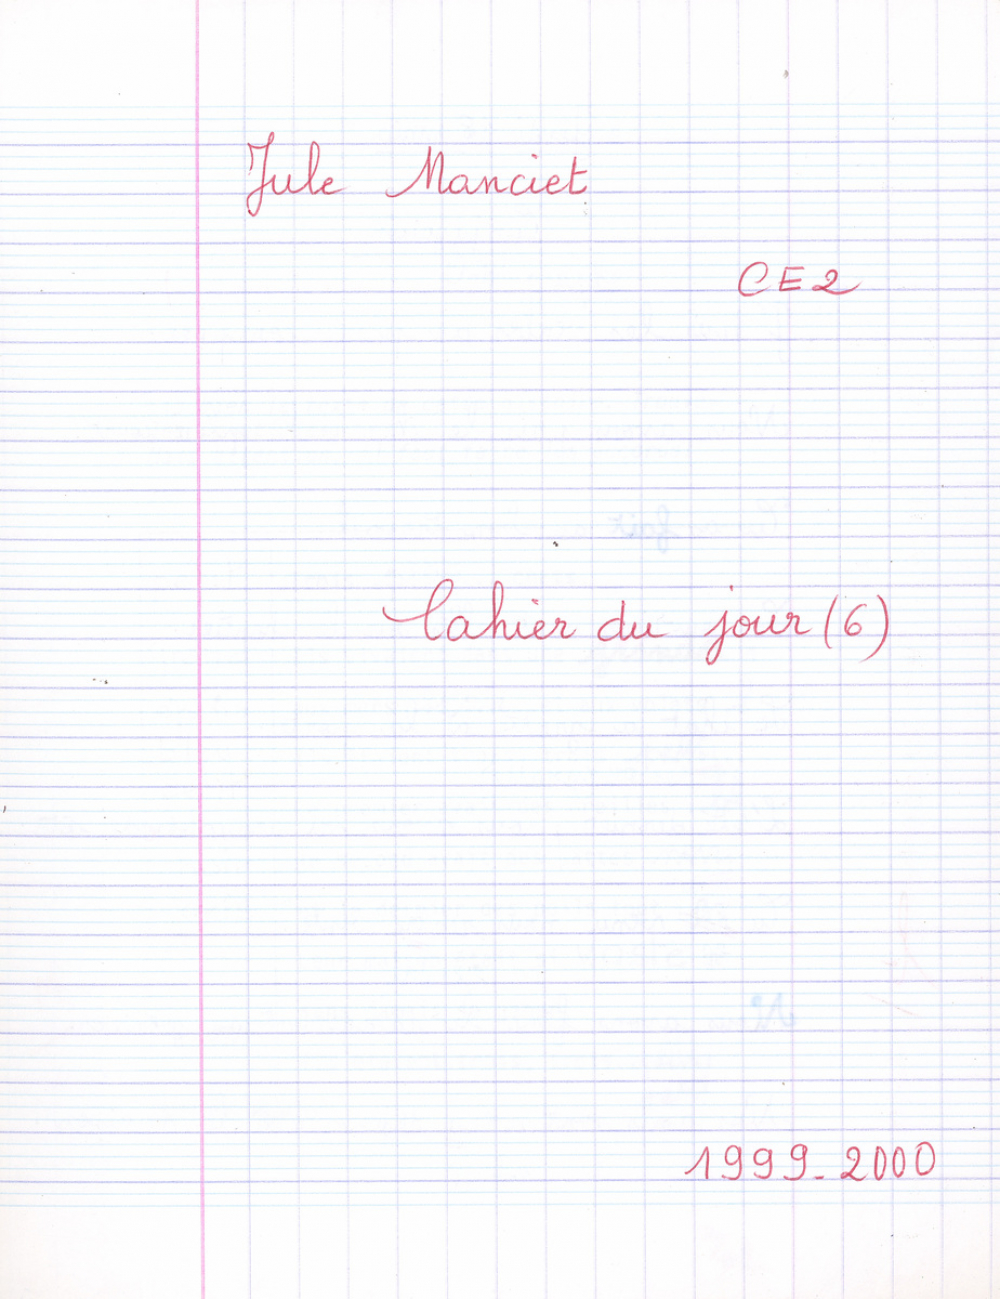 Jule Manciet
CE2
Cahier du jour (6)
1999-2000